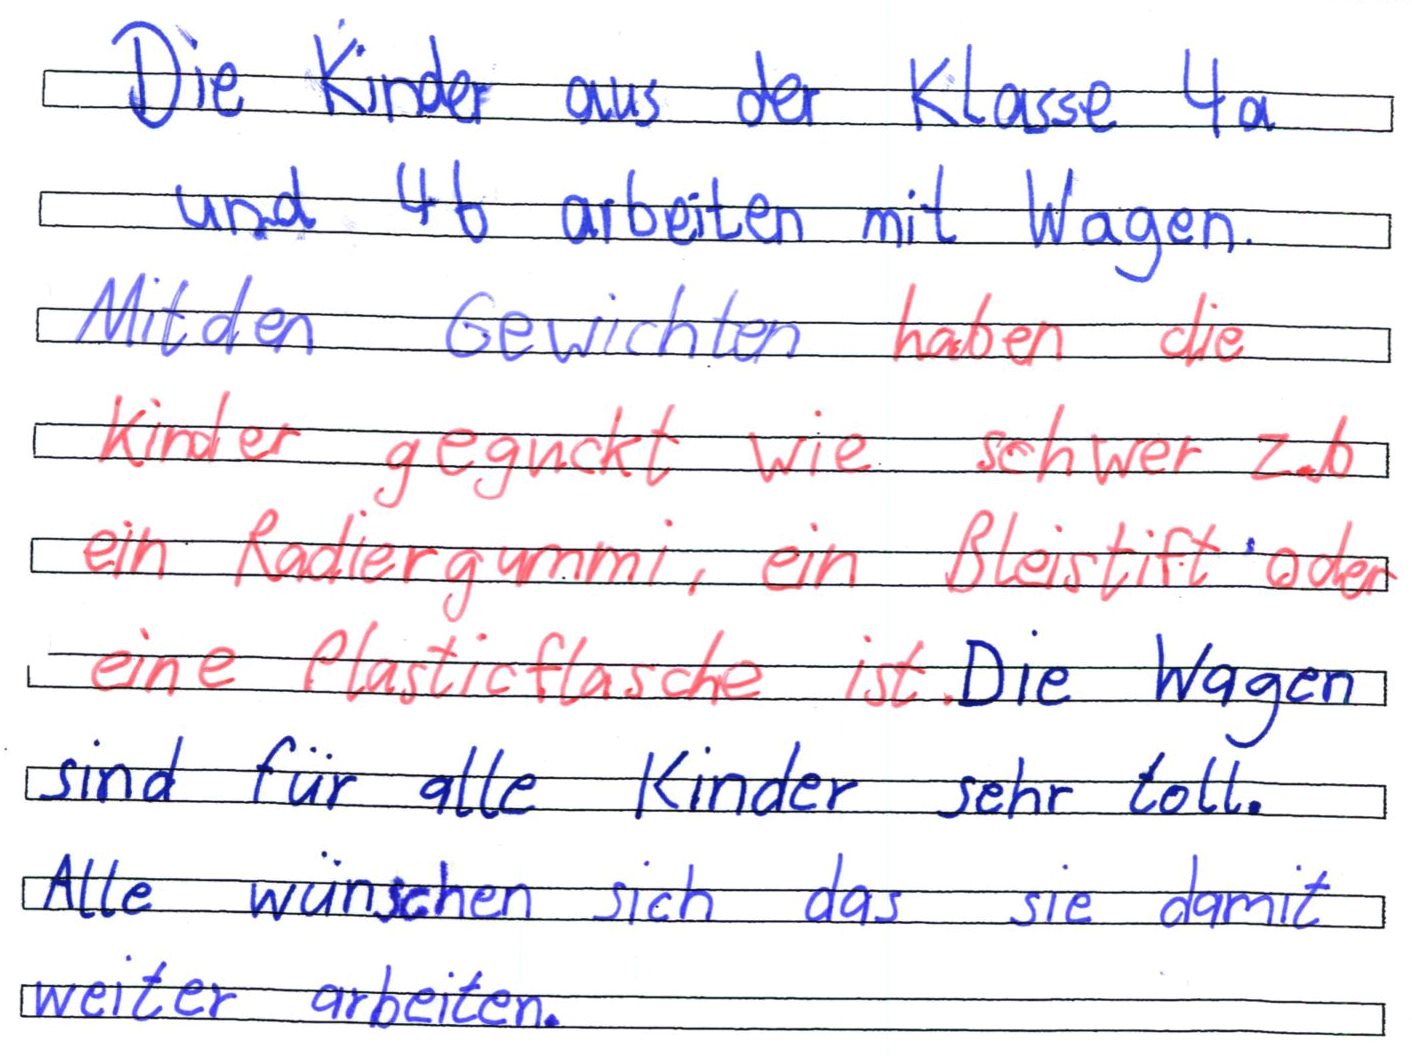 Die Kinder aus der Klasse 4a
und 4b arbeiten mit Wagen.
Mit den Gewichten haben die
Kinder geguckt wie schwer z.b
ein Radiergummi, ein Bleistift oder
eine Plasticflasche ist. Die Wagen
sind für alle Kinder sehr toll.
Alle wünschen sich das sie damit
weiter arbeiten.